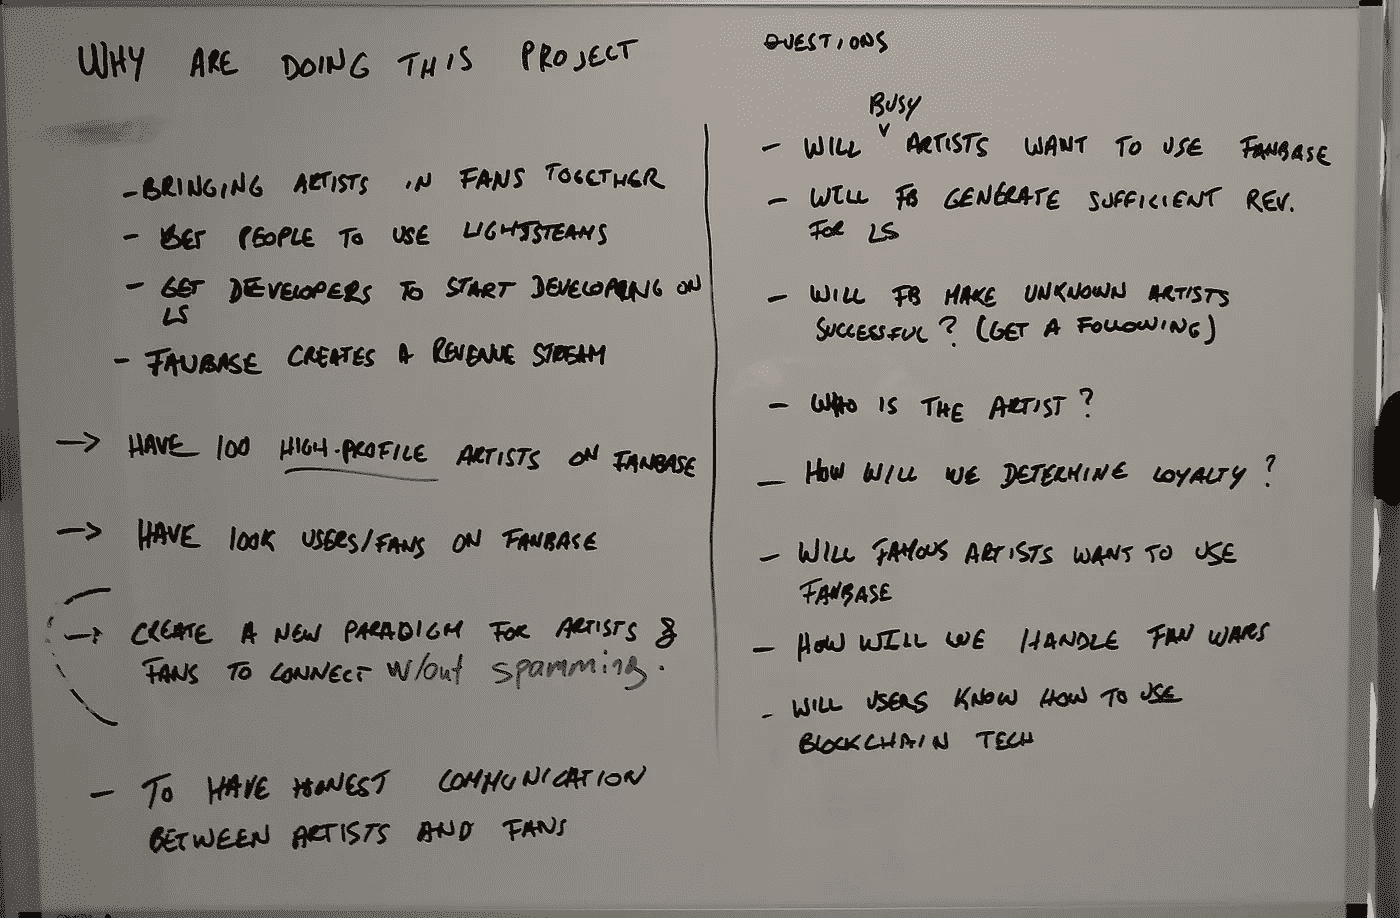 WHY ARE DOING THIS PROJECT
- BRINGING ARTISTS IN FANS TOGETHER
- GET PEOPLE TO USE LIGHTSTEAMS
- GET DEVELOPERS TO START DEVELOPING ON
LS
- FANBASE CREATES A REVENUE STREAM
→ HAVE 100 HIGH-PROFILE ARTISTS ON FANBASE
→ HAVE 100K USERS/FANS ON FANBASE
→ CREATE A NEW PARADIGM FOR ARTISTS &
FANS TO CONNECT w/out spamming.
- TO HAVE HONEST COMMUNICATION
BETWEEN ARTISTS AND FANS
QUESTIONS
BUSY
- WILL ᵛ ARTISTS WANT TO USE FANBASE
- WILL FB GENERATE SUFFICIENT REV.
FOR LS
- WILL FB MAKE UNKNOWN ARTISTS
SUCCESSFUL? (GET A FOLLOWING)
- WHO IS THE ARTIST?
- HOW WILL WE DETERMINE LOYALTY?
- WILL FAMOUS ARTISTS WANT TO USE
FANBASE
- HOW WILL WE HANDLE FAN WARS
- WILL USERS KNOW HOW TO USE
BLOCKCHAIN TECH